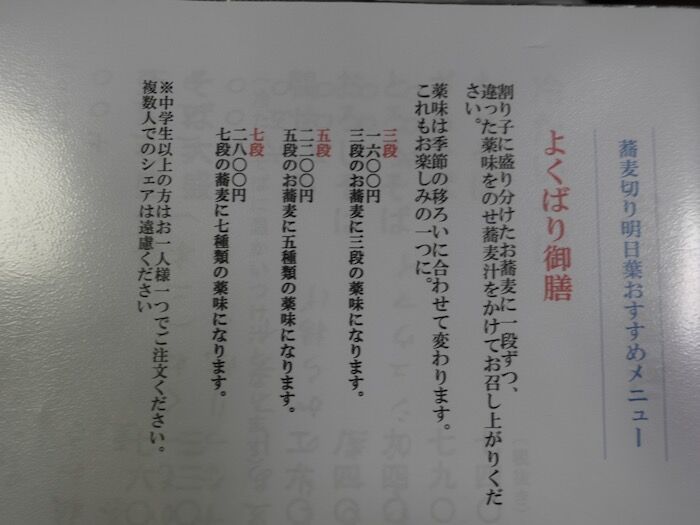 蕎麦切り明日葉おすすめメニュー
よくばり御膳
割り子に盛り分けたお蕎麦に一段ずつ、
違った薬味をのせ蕎麦汁をかけてお召し上がりくだ
さい。
薬味は季節の移ろいに合わせて変わります。
これもお楽しみの一つに。
三段
一六〇〇円
三段のお蕎麦に三段の薬味になります。
五段
二二〇〇円
五段のお蕎麦に五種類の薬味になります。
七段
二八〇〇円
七段の蕎麦に七種類の薬味になります。
※中学生以上の方はお一人様一つでご注文ください。
複数人でのシェアは遠慮ください